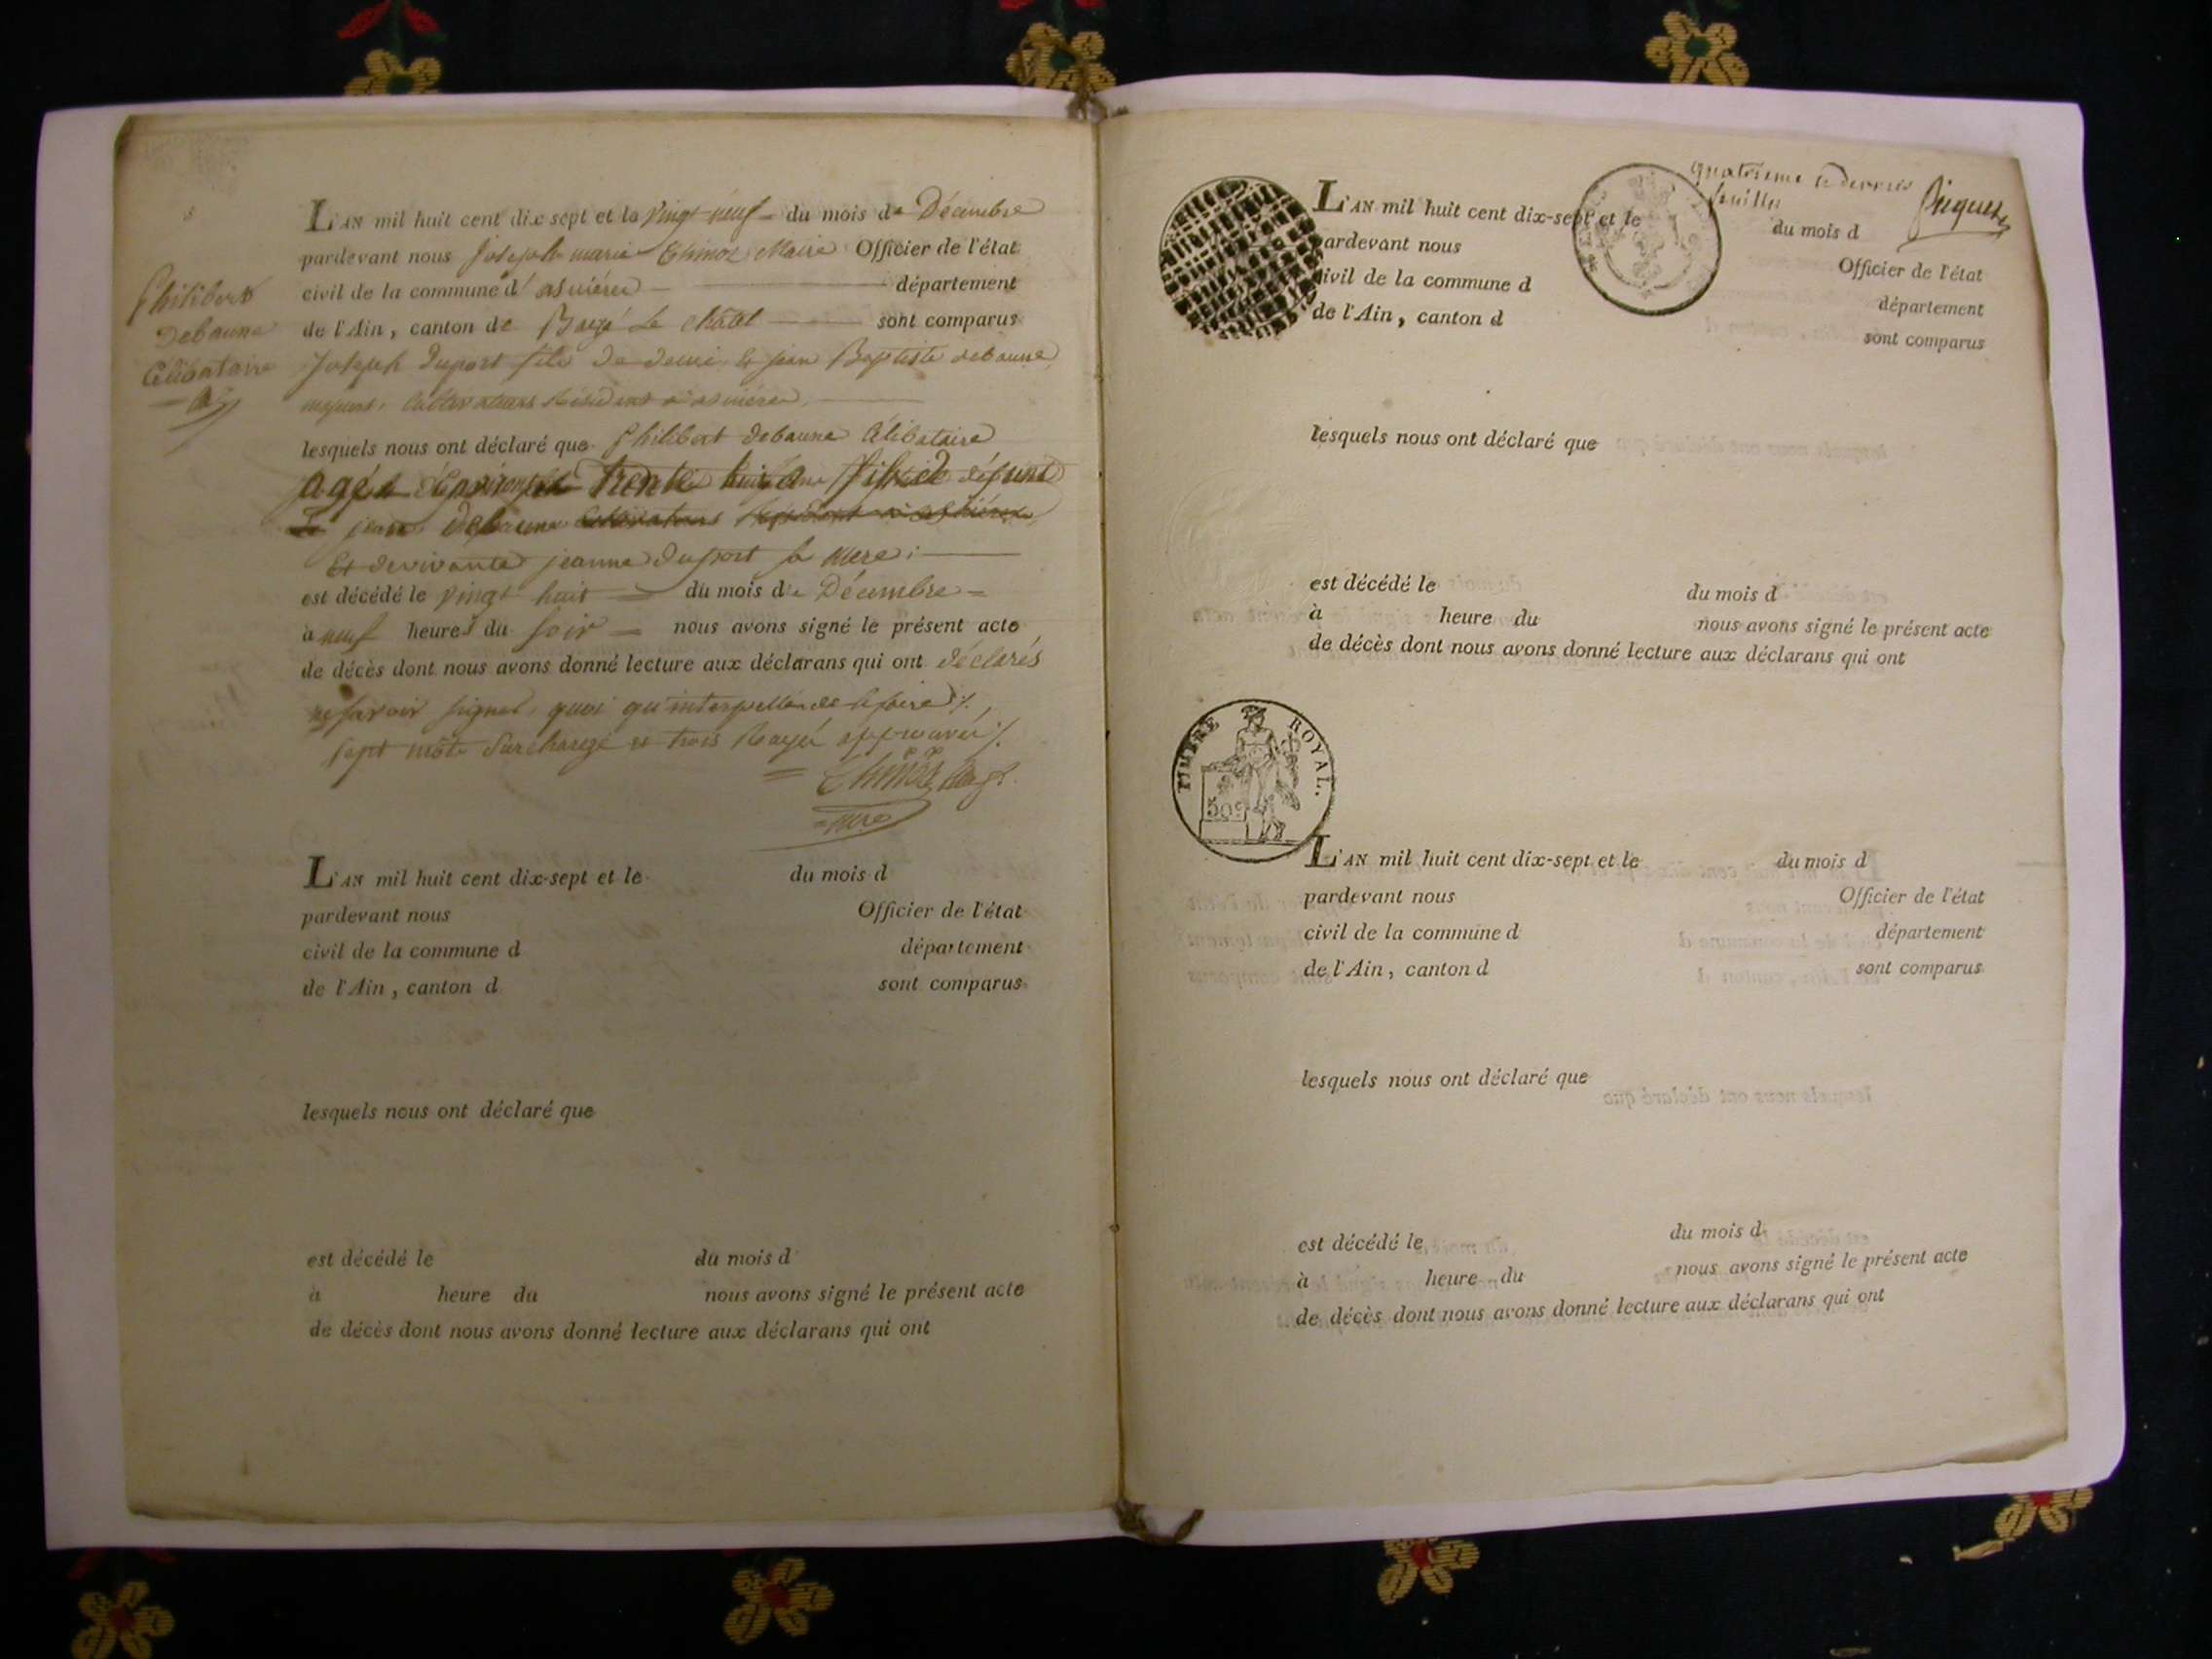 L'AN mil huit cent dix-sept et le vingt neuf du mois de Décembre
pardevant nous joseph marie Maire Officier de l'état
civil de la commune d'asniéres département
de l'Ain, canton de Bagé Le châtel sont comparus
joseph duport fils de jean Baptiste debaune
majeurs, cultivateurs Résidant a asniéres
lesquels nous ont déclaré que philibert debaune Célibataire
agé d'environ trente huit ans fils de défunt
jean debaune cultivateur
Et de vivante jeanne duport sa mere;
est décédé le vingt huit du mois de Décembre
à neuf heures du soir nous avons signé le présent acte
de décès dont nous avons donné lecture aux déclarans qui ont déclarés
ne savoir signer, quoi qu'interpellés de le faire ٪
sept mots surchargé et trois Rayé approuvés ٪
mre
Philibert
debaune
Célibataire
L'AN mil huit cent dix-sept et le du mois d
pardevant nous Officier de l'état
civil de la commune d département
de l'Ain, canton d sont comparus
lesquels nous ont déclaré que
est décédé le du mois d
à heure du nous avons signé le présent acte
de décès dont nous avons donné lecture aux déclarans qui ont
quatrieme et dernier
feuillet
L'AN mil huit cent dix-sept et le du mois d
pardevant nous Officier de l'état
civil de la commune d département
de l'Ain, canton d sont comparus
lesquels nous ont déclaré que
est décédé le du mois d
à heure du nous avons signé le présent acte
de décès dont nous avons donné lecture aux déclarans qui ont
TIMBRE ROYAL.
50c
L'AN mil huit cent dix-sept et le du mois d
pardevant nous Officier de l'état
civil de la commune d département
de l'Ain, canton d sont comparus
lesquels nous ont déclaré que
est décédé le du mois d
à heure du nous avons signé le présent acte
de décès dont nous avons donné lecture aux déclarans qui ont